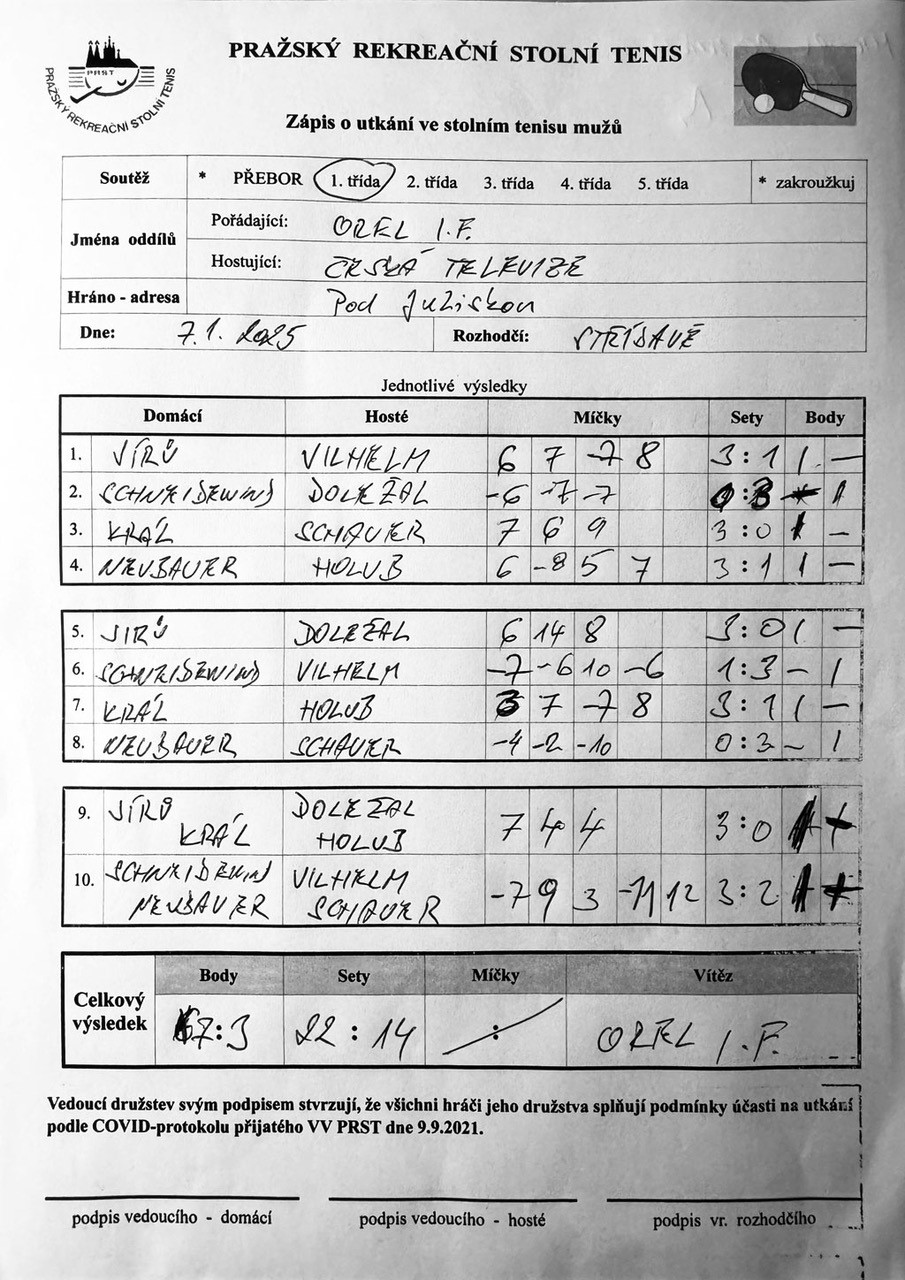 PRST
PRAŽSKÝ REKREAČNÍ STOLNÍ TENIS
PRAŽSKÝ REKREAČNÍ STOLNÍ TENIS
Zápis o utkání ve stolním tenisu mužů
Soutěž * PŘEBOR 1. třída 2. třída 3. třída 4. třída 5. třída * zakroužkuj
Jména oddílů
Pořádající: OREL I.F.
Hostující: ČESKÁ TELEVIZE
Hráno - adresa Pod Juliskou
Dne: 7.1. 2025 Rozhodčí: STŘÍDAVĚ
Jednotlivé výsledky
Domácí Hosté Míčky Sety Body
1. JÍRŮ VILHELM 6 7 -7 8 3:1 1 -
2. SCHNEIDEWIND DOLEŽAL -6 -7 -7 0:3 - 1
3. KRÁL SCHAUER 7 6 9 3:0 1 -
4. NEUBAUER HOLUB 6 -8 5 7 3:1 1 -
5. JIRŮ DOLEŽAL 6 14 8 3:0 1 -
6. SCHNEIDEWIND VILHELM -7 -6 10 -6 1:3 - 1
7. KRÁL HOLUB 3 7 -7 8 3:1 1 -
8. NEUBAUER SCHAUER -4 -2 -10 0:3 - 1
9. JÍRŮ DOLEŽAL
KRÁL HOLUB 7 4 4 3:0 1
10. SCHNEIDEWIND VILHELM
NEUBAUER SCHAUER -7 9 3 -11 12 3:2 1
Celkový výsledek
Body Sety Míčky Vítěz
7:3 22:14 : OREL I.F.
Vedoucí družstev svým podpisem stvrzují, že všichni hráči jeho družstva splňují podmínky účasti na utkání
podle COVID-protokolu přijatého VV PRST dne 9.9.2021.
podpis vedoucího - domácí podpis vedoucího - hosté podpis vr. rozhodčího